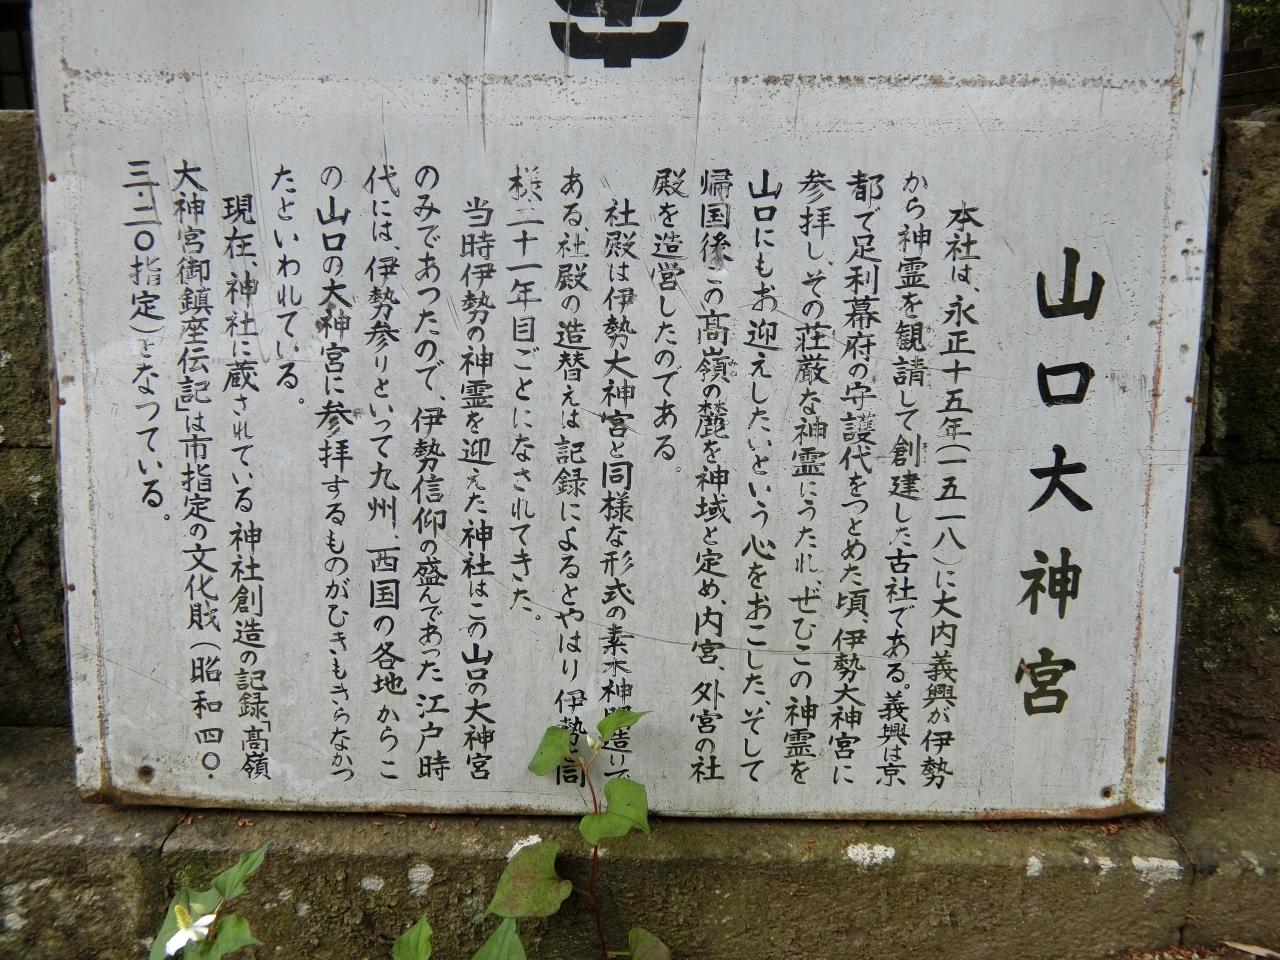 山口大神宮
本社は、永正十五年(一五一八)に大内義興が伊勢
から神霊を観請して創建した古社である。義興は京
都で足利幕府の守護代をつとめた頃、伊勢大神宮に
参拝し、その荘厳な神霊にうたれ、ぜひこの神霊を
山口にもお迎えしたいという心をおこした、そして
帰国後この高嶺の麓を神域と定め、内宮、外宮の社
殿を造営したのである。
社殿は伊勢大神宮と同様な形式の素木神明造りで
ある、社殿の造替えは記録によるとやはり伊勢と同
様二十一年目ごとになされてきた。
当時伊勢の神霊を迎えた神社はこの山口の大神宮
のみであつたので、伊勢信仰の盛んであった江戸時
代には、伊勢参りといって九州、西国の各地からこ
の山口の大神宮に参拝するものがひきもきらなかつ
たといわれている。
現在、神社に蔵されている神社創造の記録「高嶺
大神宮御鎮座伝記」は市指定の文化財(昭和四〇・
三・二〇指定)となつている。